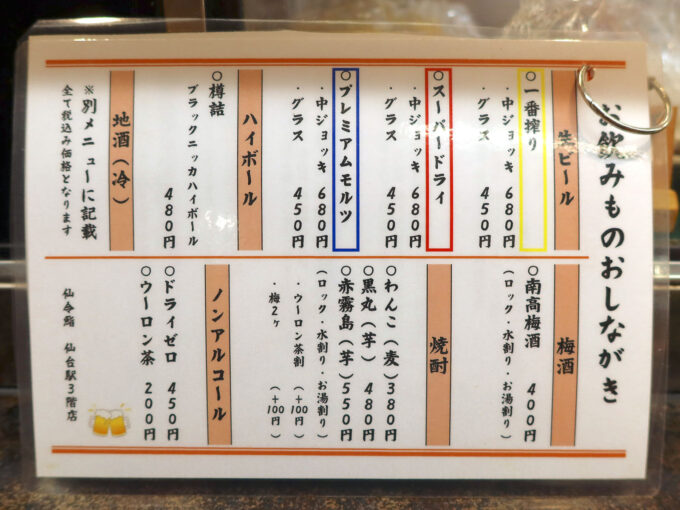 お飲みものおしながき
生ビール
○一番搾り
・中ジョッキ 680円
・グラス 450円
○スーパードライ
・中ジョッキ 680円
・グラス 450円
○プレミアムモルツ
・中ジョッキ 680円
・グラス 450円
ハイボール
○樽詰
ブラックニッカハイボール
480円
地酒(冷)
※別メニューに記載
全て税込み価格となります
梅酒
○南高梅酒 400円
(ロック・水割り・お湯割り)
焼酎
○わんこ(麦)380円
○黒丸(芋) 480円
○赤霧島(芋)550円
(ロック・水割り・お湯割り)
・ウーロン茶割 (+100円)
・梅2ヶ (+100円)
ノンアルコール
○ドライゼロ 450円
○ウーロン茶 200円
仙令鮨 仙台駅3階店